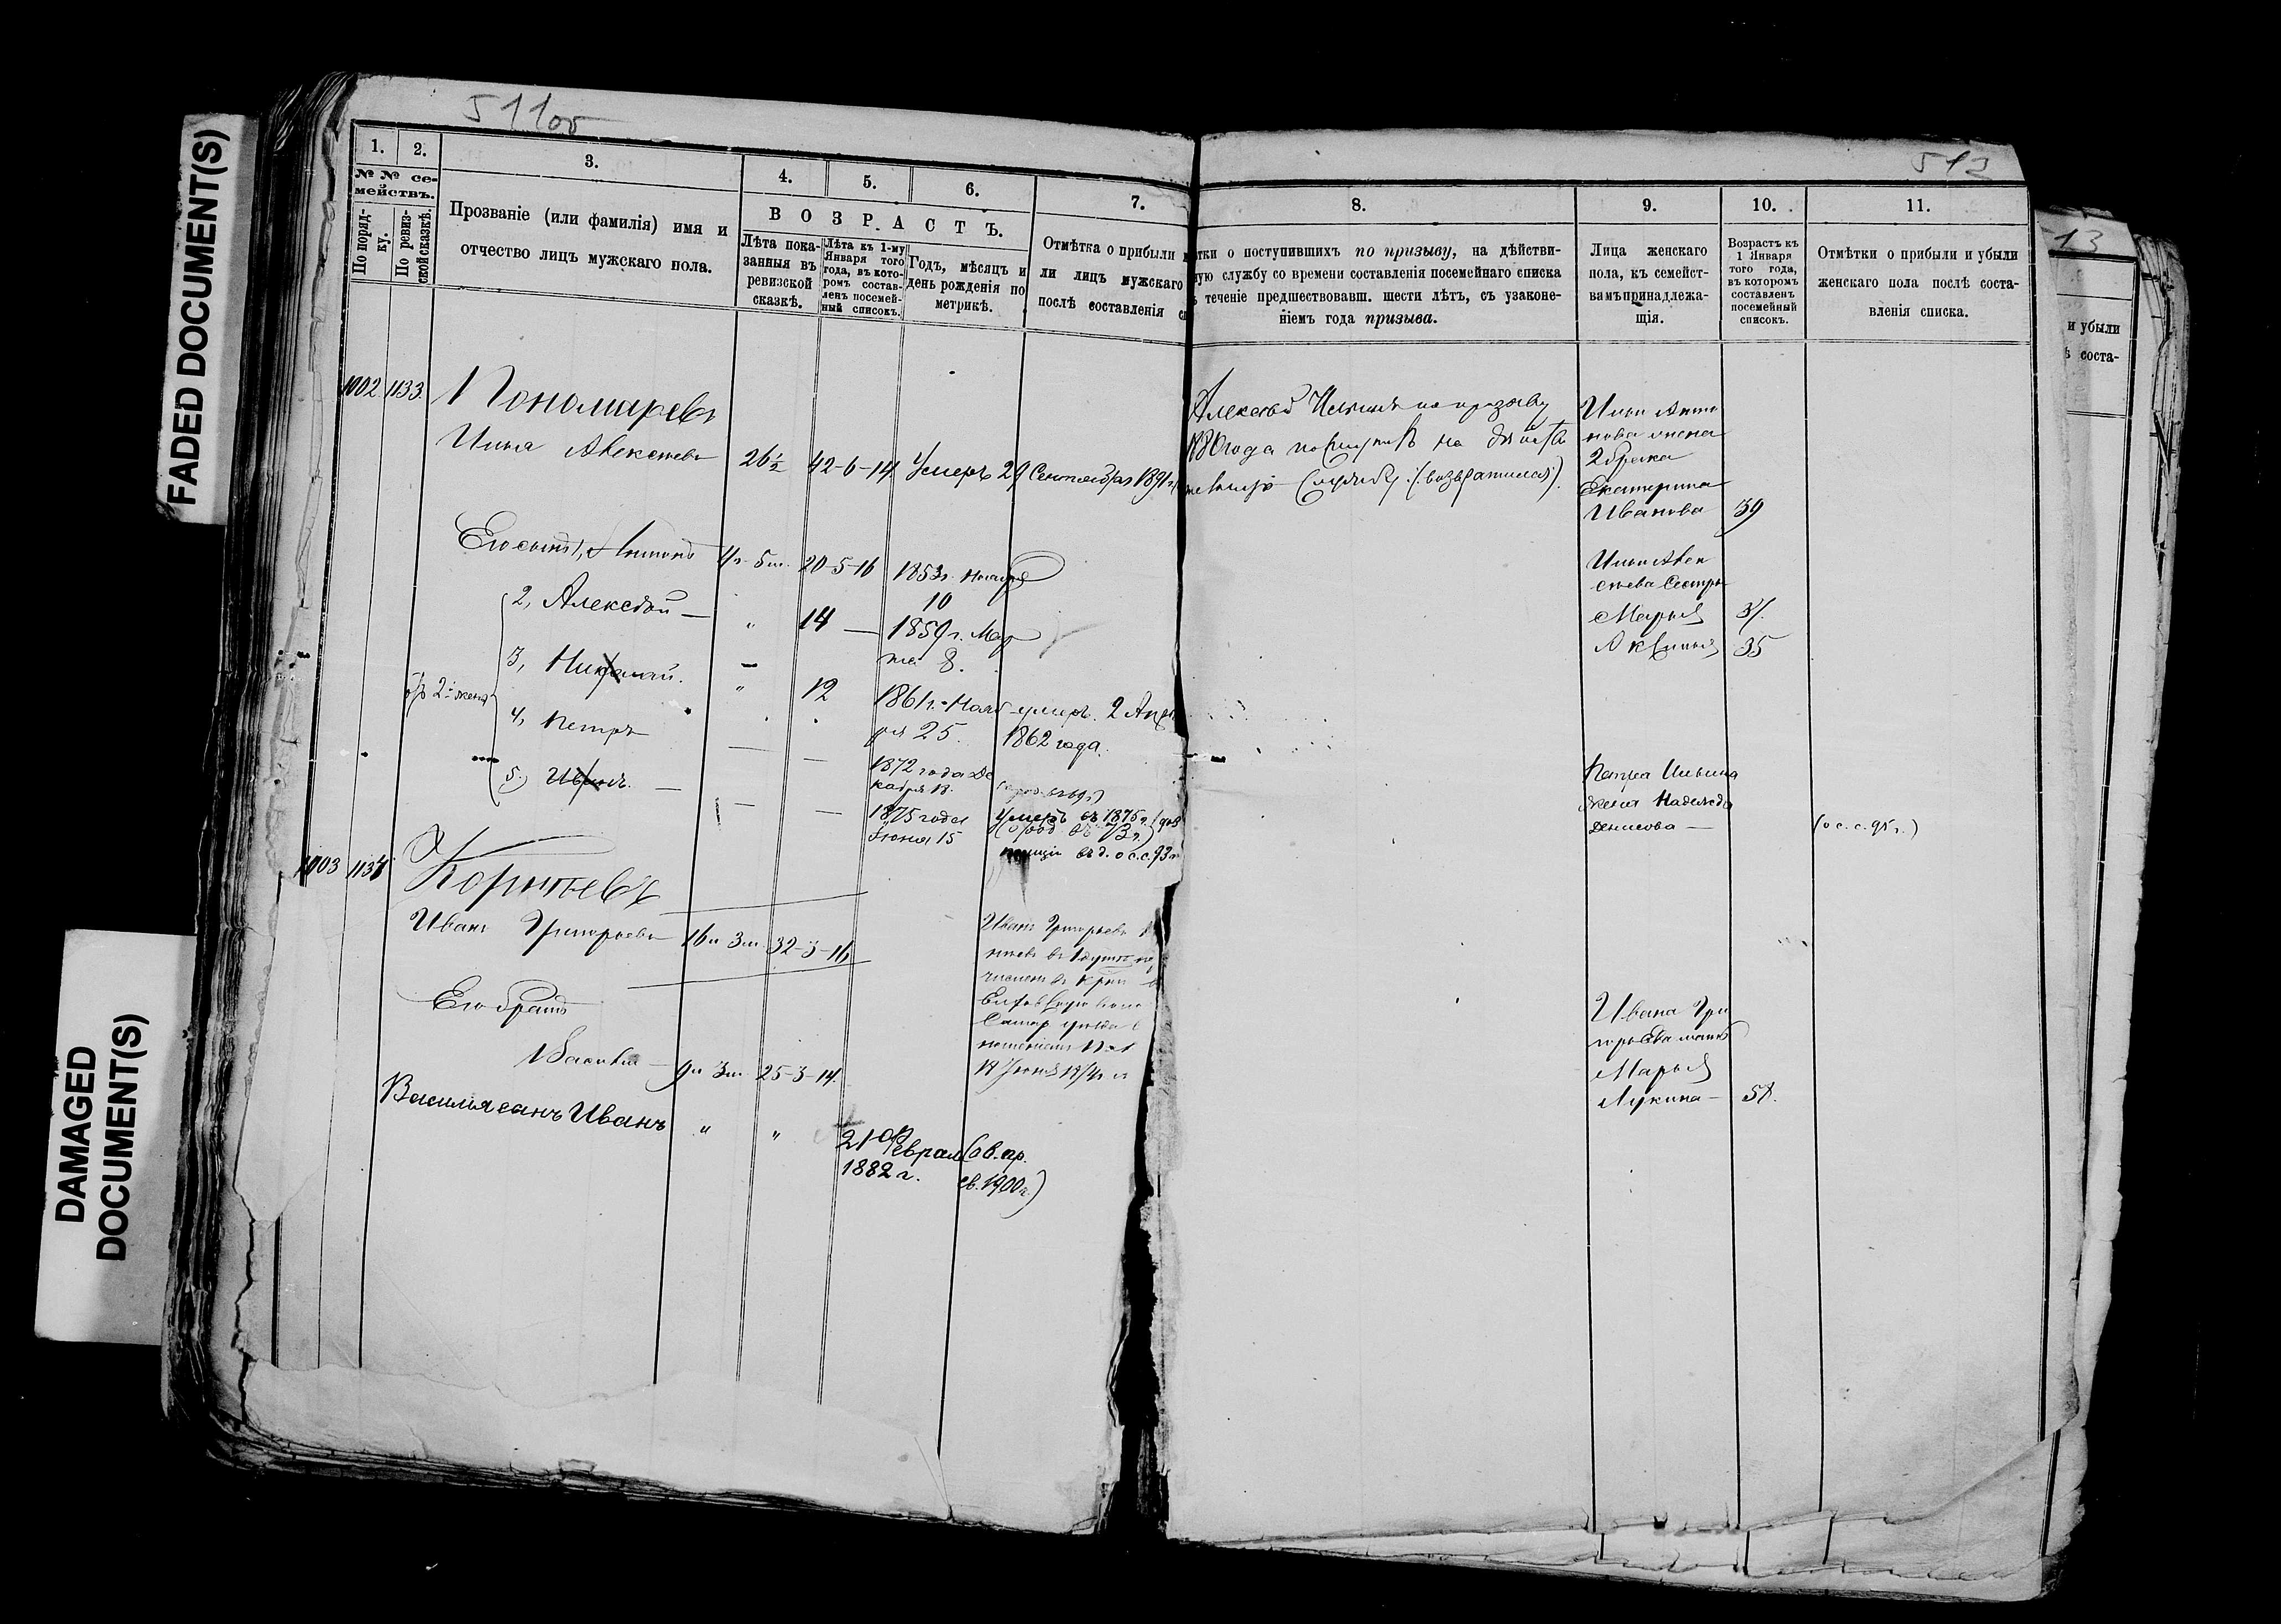 FADED DOCUMENT(S)
DAMAGED
DOCUMENT(S)
511об
1. 2. 3. 4. 5. 6. 7.
№ № се-
мействъ.
По поряд-
ку.
По ревиз-
ской сказкѣ.
Прозваніе (или фамилія) имя и
отчество лицъ мужскаго пола.
ВОЗРАСТЪ.
Лѣта пока-
занныя въ
ревизской
сказкѣ.
Лѣта къ 1-му
Января того
года, въ кото-
ромъ состав-
ленъ посемей-
ный список.
Годъ, мѣсяцъ и
день рожденія по
метрикѣ.
Отмѣтка о прибыли и
ли лицъ мужскаго
послѣ составленія сп
1102 1133. Пономаревъ
Илья Алексѣевъ 26½ 42-6-14. Умеръ 29 Сентября 1891 г.
Его сынъ 1, Антонъ 1 г. 5 м. 20-5-16 1853 г.
10
2, Алексѣй — " 14 — 1859 г. Мар
та 8.
3, Николай. " 12 1861 г. Нояб умеръ. 2 Апр
ря 25. 1862 года.
отъ 2й жены
4, Петръ — — 1872 года Де
кабря 18.
5, Иванъ. — — — 1875 года Умеръ въ 1875 г.
Іюня 15
1103 1134 Корнѣевъ
Иванъ Григорьевъ 16 л 3 м. 32-3-16 Иванъ Григорьевъ
Его братъ
Василій — 9 л 3 м. 25-3-14.
Василія сынъ Иванъ " " 21 Феврал (св. пр.
1882 г. св. 1900 г.)
512
8. 9. 10. 11.
тки о поступившихъ по призыву, на дѣйстви-
ную службу со времени составленія посемейнаго списка
ъ теченіе предшествовавш. шести лѣтъ, съ узаконе-
ніемъ года призыва.
Лица женскаго
пола, къ семейст-
вамъ принадлежа-
щія.
Возрастъ къ
1 Января
того года,
въ которомъ
составленъ
посемейный
списокъ.
Отмѣтки о прибыли и убыли
женскаго пола послѣ соста-
вленія списка.
Алексѣй Ильинъ по призыву
1880 года поступилъ на дѣйств
службу. (возвратился).
жена
2 брака
Екатерина
Иванова 39
Ильи Алек
сѣева Сестры
Марья 37.
Аксинья 35
Петра Ильина
жена Надежда
Денисова — (о с. с. 95 г.)
Ивана Гри
горьева мать
Марья
Лукина — 58.
513
и убыли
ѣ соста-